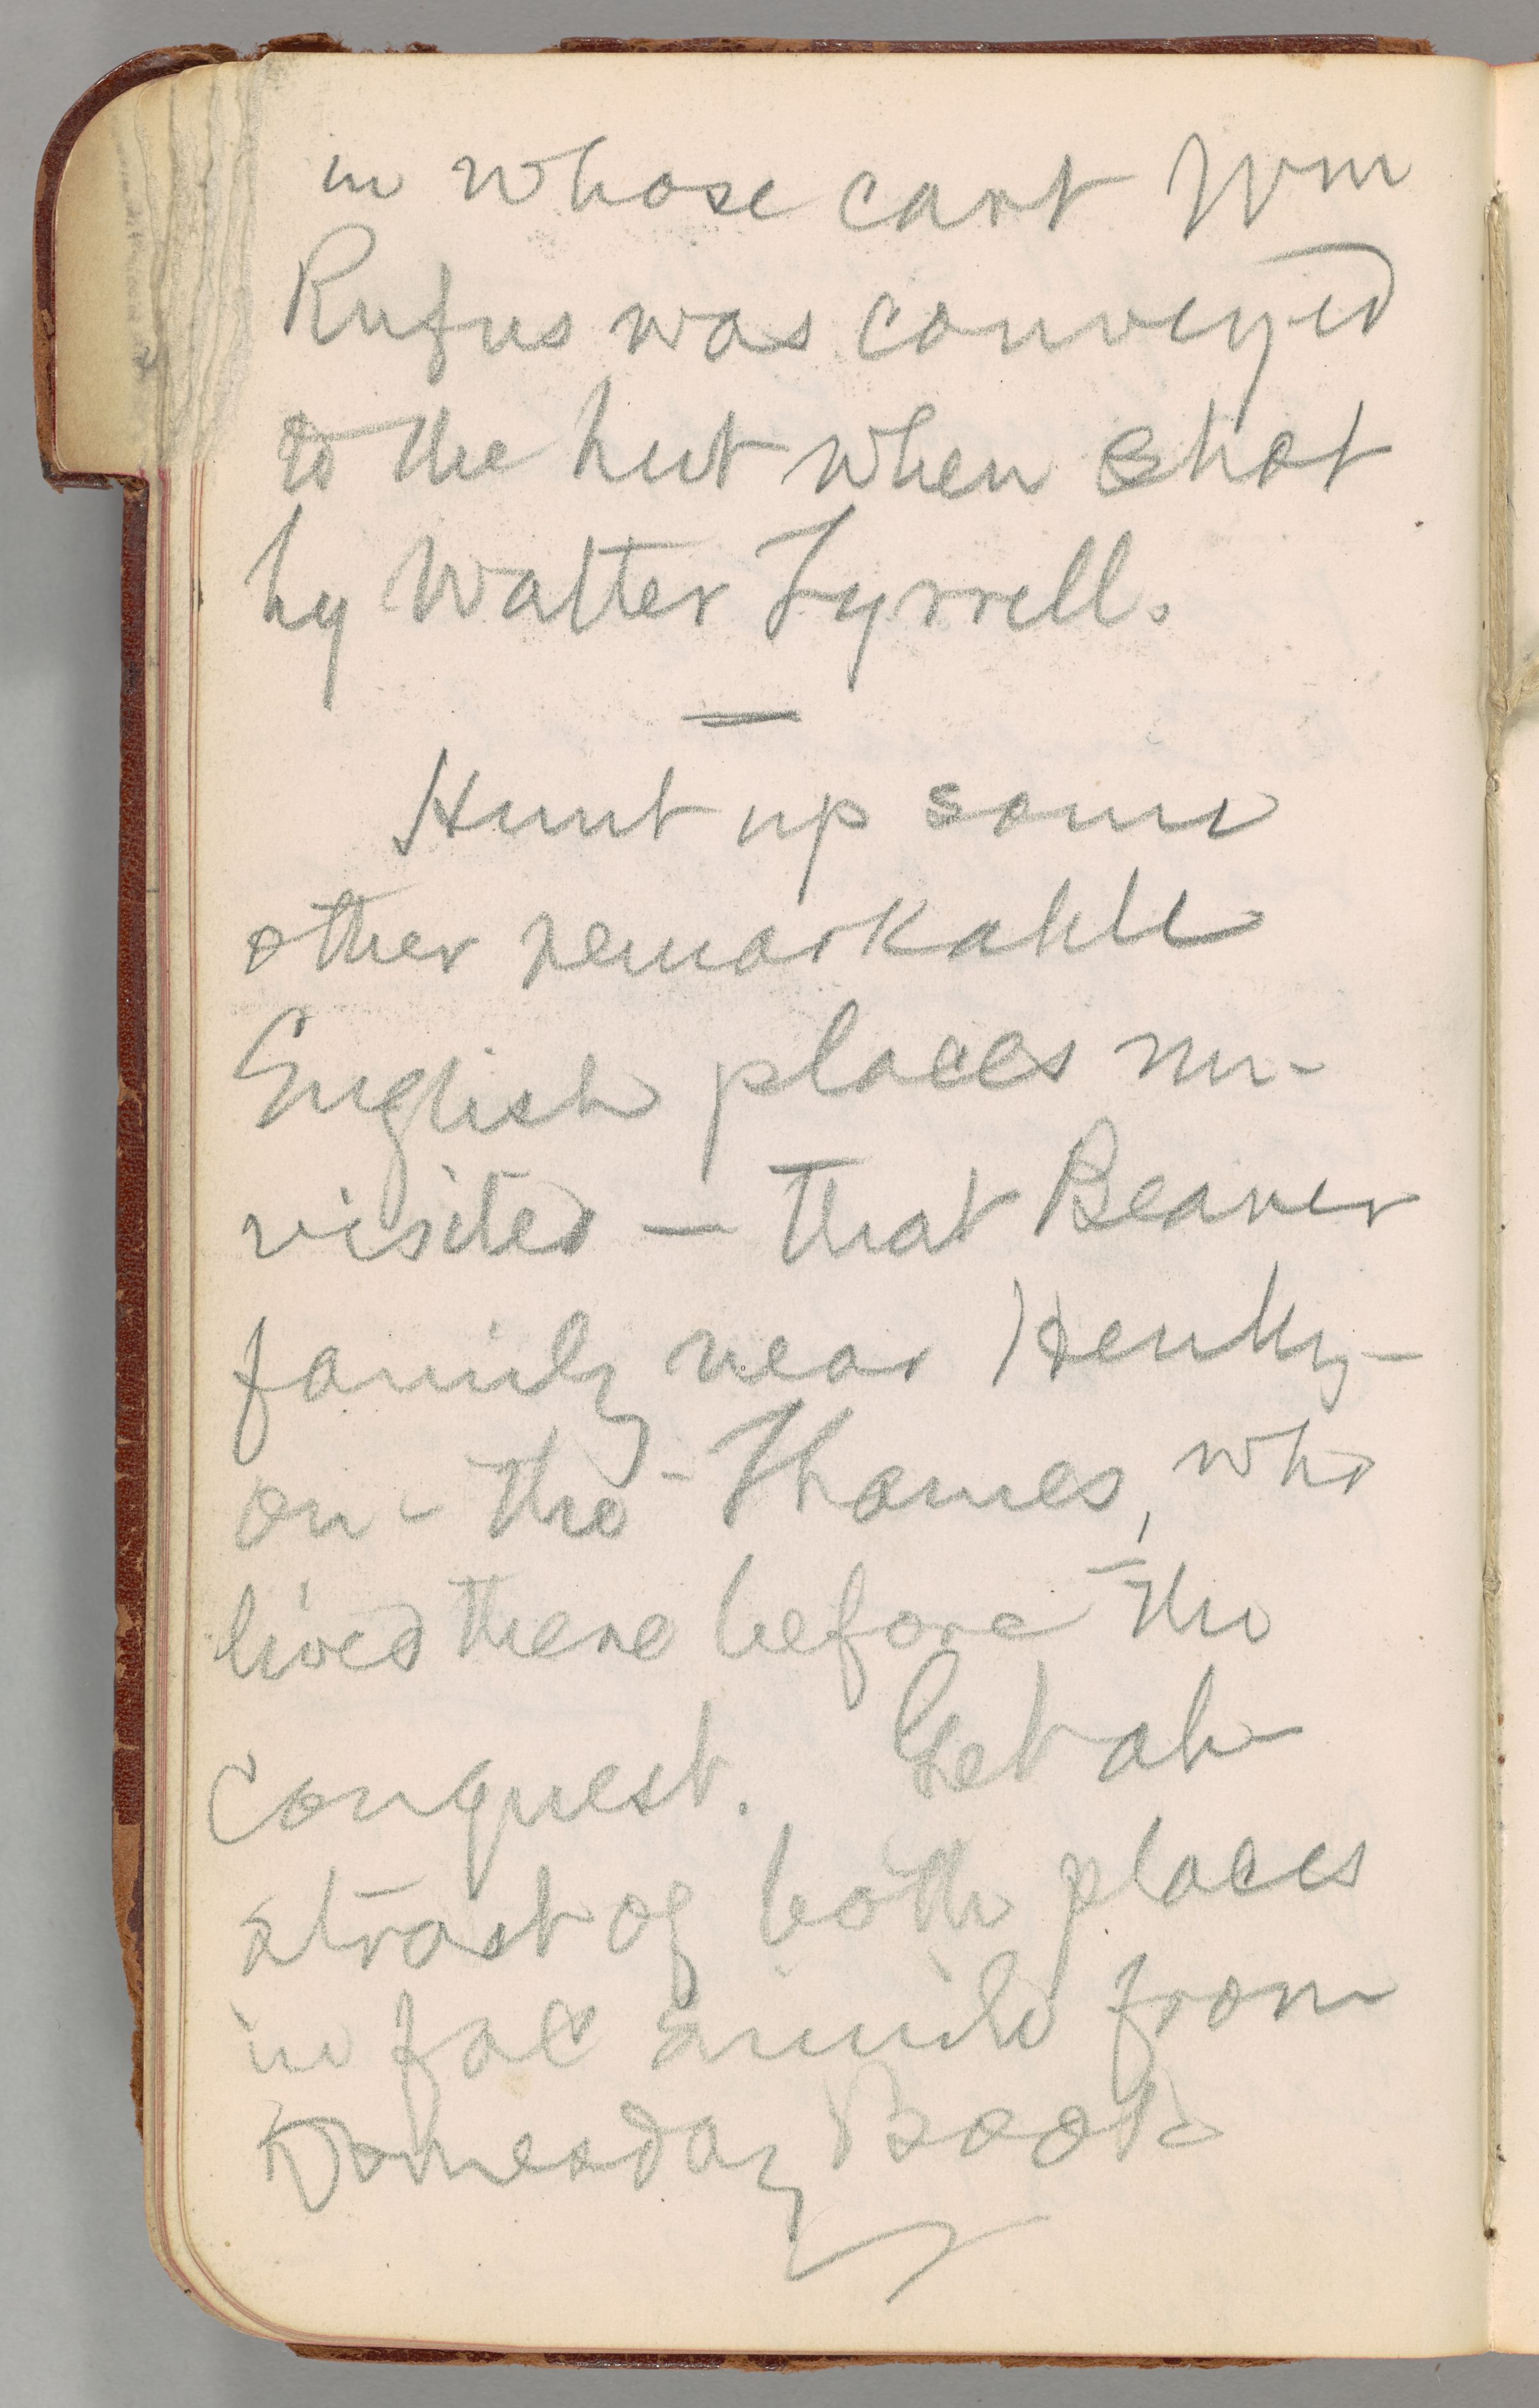 in whose cart Wm
Rufus was conveyed
to the hut when shot
by Walter Tyrrell.
—
Hunt up some
other remarkable
English places un-
visited — that Beaver
family near Henley-
on-the-Thames, who
lived there before the
Conquest. Get ab-
stract of both places
in fac simile from
Domesday Book